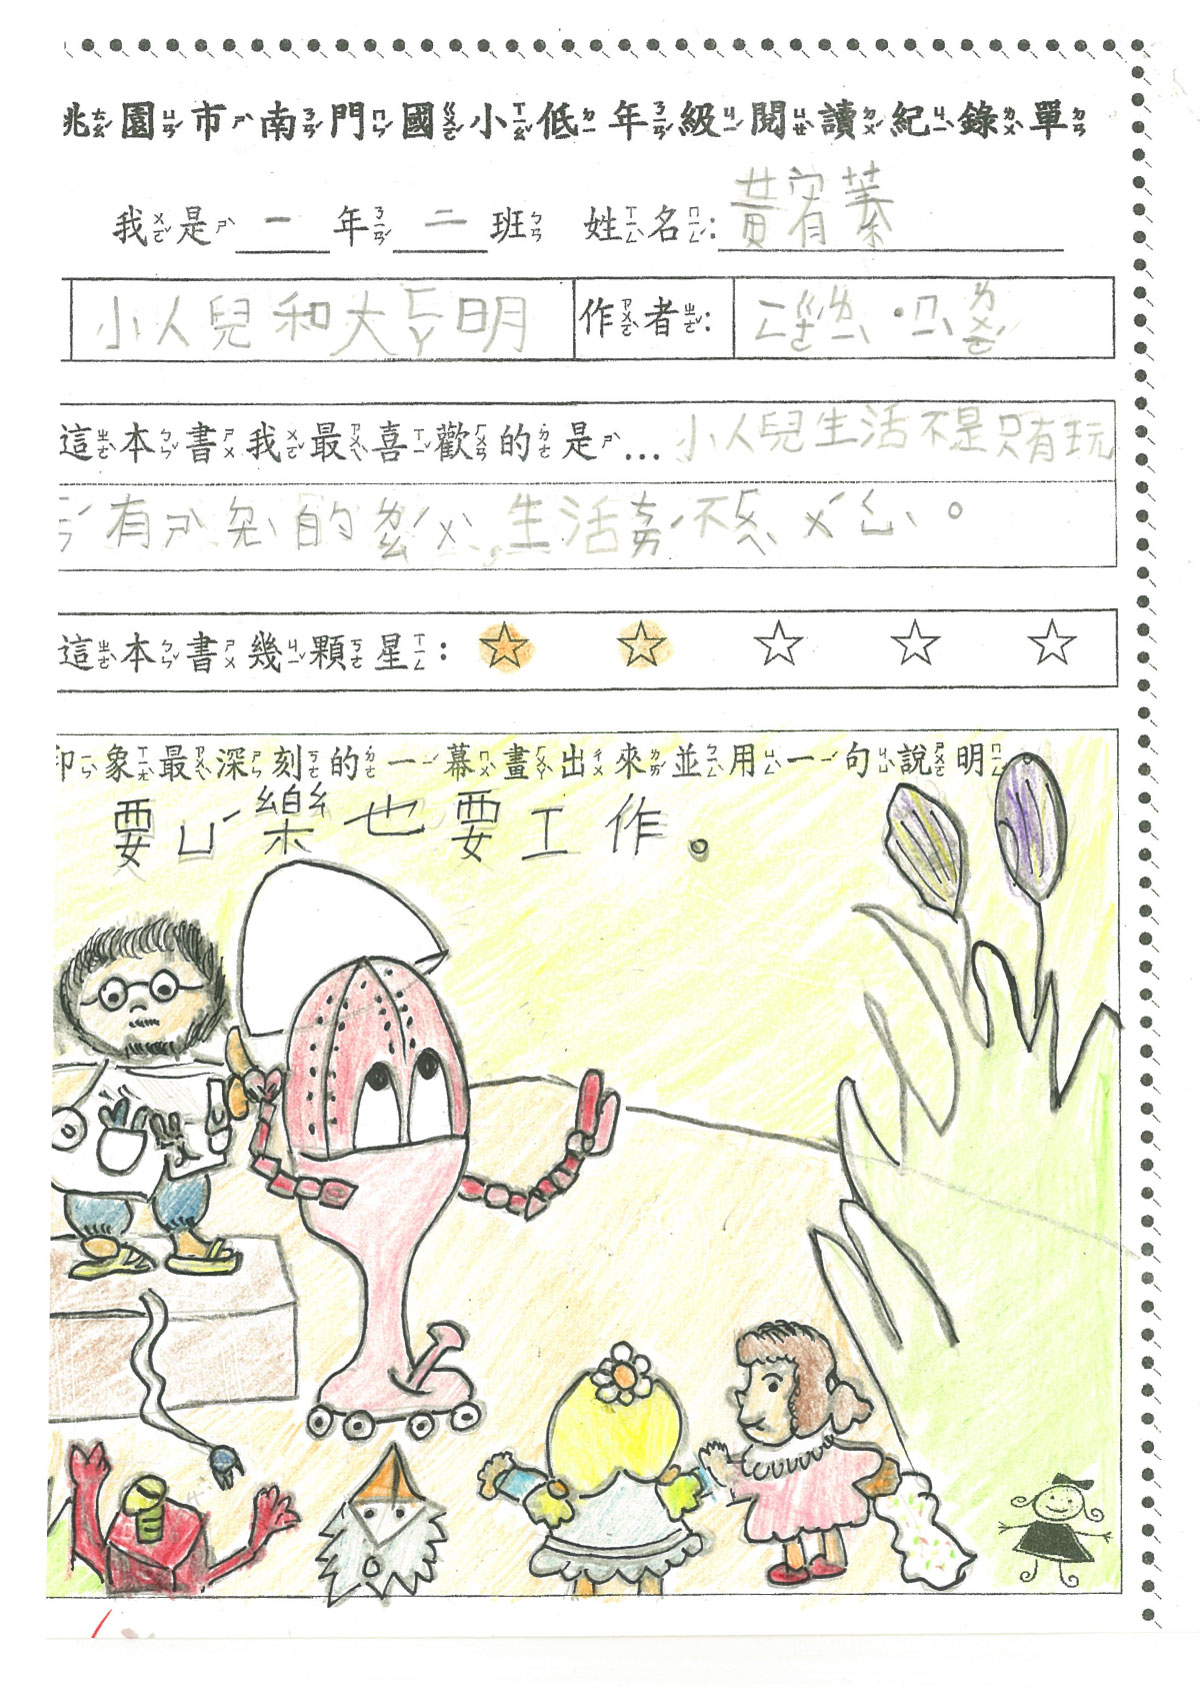 兆ㄊㄠˊ園ㄩㄢˊ市ㄕˋ南ㄋㄢˊ門ㄇㄣˊ國ㄍㄨㄛˊ小ㄒㄧㄠˇ低ㄉㄧ年ㄋㄧㄢˊ級ㄐㄧˊ閱ㄩㄝˋ讀ㄉㄨˊ紀ㄐㄧˋ錄ㄌㄨˋ單ㄉㄢ
我ㄨㄛˇ是ㄕˋ 一 年ㄋㄧㄢˊ 二 班ㄅㄢ 姓ㄒㄧㄥˋ名ㄇㄧㄥˊ: 黃宥蓁
小人兒和大ㄈㄚ明 作ㄗㄨㄛˋ者ㄓㄜˇ:
這ㄓㄜˋ本ㄅㄣˇ書ㄕㄨ我ㄨㄛˇ最ㄗㄨㄟˋ喜ㄒㄧˇ歡ㄏㄨㄢ的ㄉㄜ˙是ㄕˋ... 小人兒生活不是只有玩
有ㄕˊ 的 生活 不 。
這ㄓㄜˋ本ㄅㄣˇ書ㄕㄨ幾ㄐㄧˇ顆ㄎㄜ星ㄒㄧㄥ:
印ㄧㄣˋ象ㄒㄧㄤˋ最ㄗㄨㄟˋ深ㄕㄣ刻ㄎㄜˋ的ㄉㄜ˙一ㄧˊ幕ㄇㄨˋ畫ㄏㄨㄚˋ出ㄔㄨ來ㄌㄞˊ並ㄅㄧㄥˋ用ㄩㄥˋ一ㄧˊ句ㄐㄩˋ說ㄕㄨㄛ明ㄇㄧㄥˊ
要ㄩˊ樂也要工作。